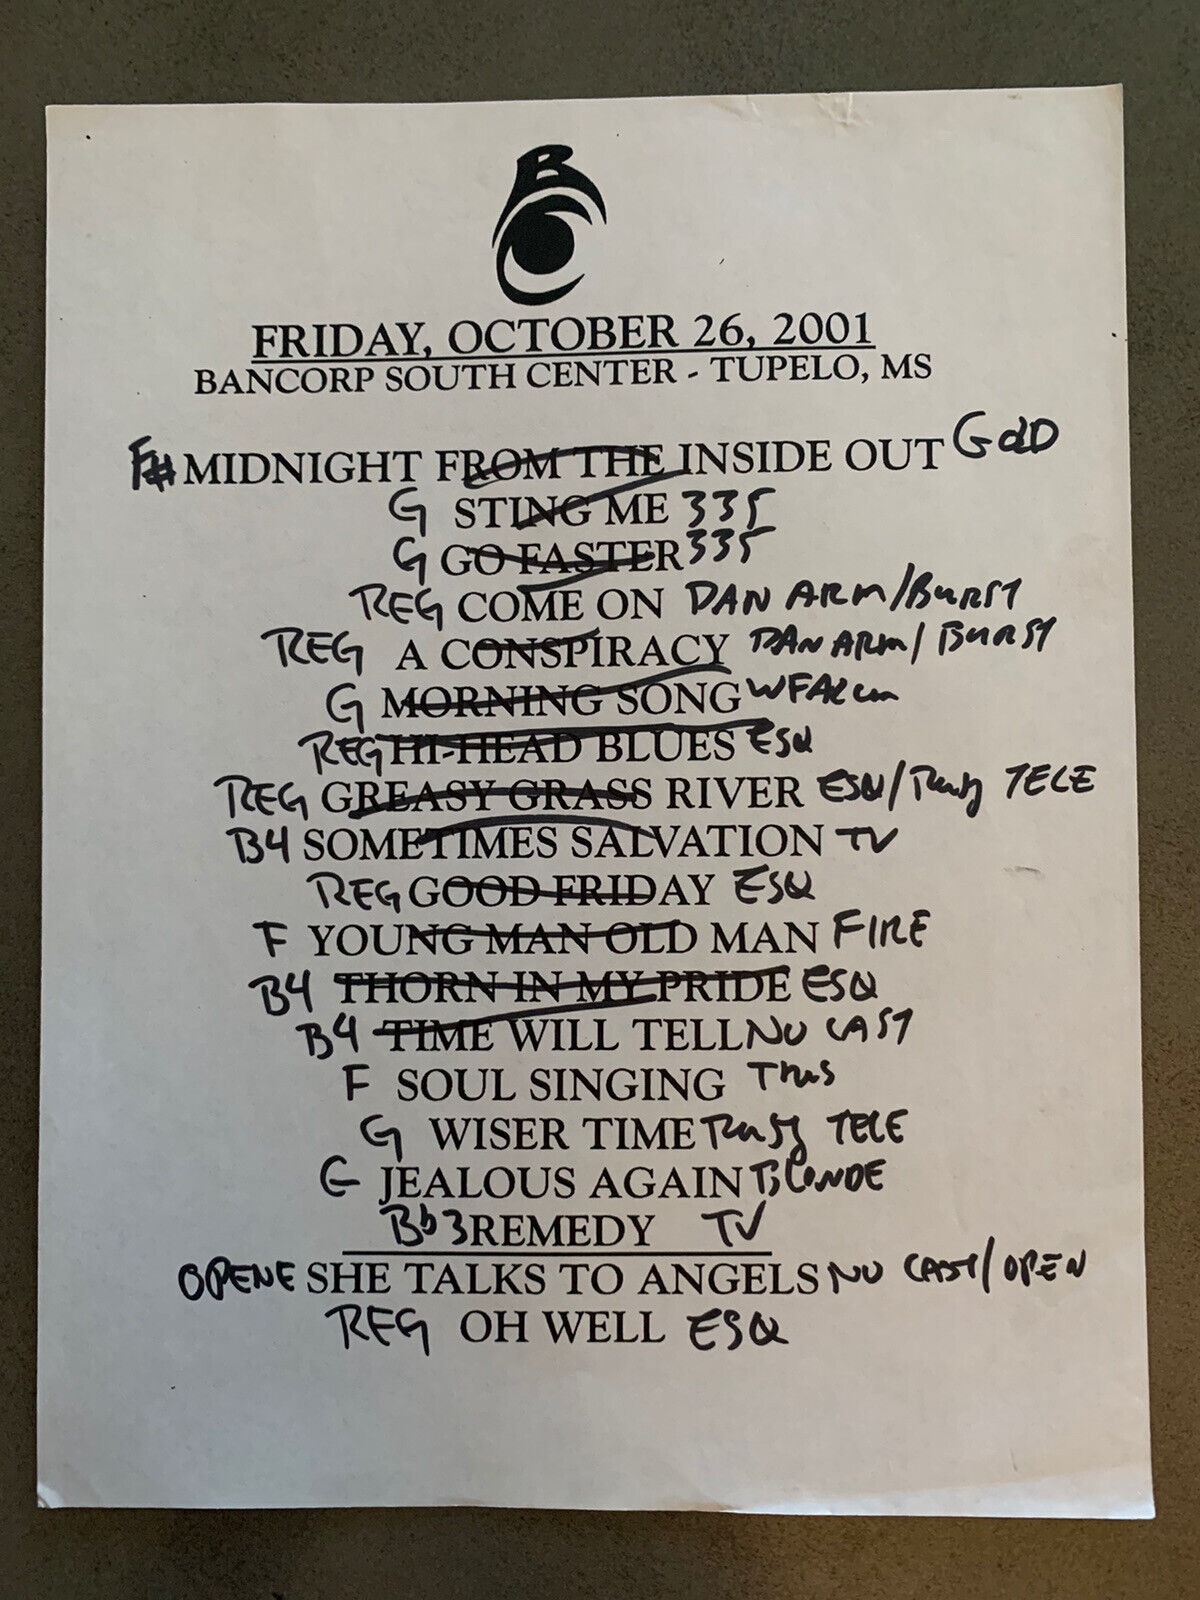 BC
FRIDAY, OCTOBER 26, 2001
BANCORP SOUTH CENTER - TUPELO, MS
F# MIDNIGHT FROM THE INSIDE OUT GOLD
G STING ME 335
G GO FASTER 335
REG COME ON DAN ARM/BURST
REG A CONSPIRACY DAN ARM/BURST
G MORNING SONG WFALCON
REG HI-HEAD BLUES ESQ
REG GREASY GRASS RIVER ESQ/Rusty TELE
B4 SOMETIMES SALVATION TV
REG GOOD FRIDAY ESQ
F YOUNG MAN OLD MAN FIRE
B4 THORN IN MY PRIDE ESQ
B4 TIME WILL TELL NU CAST
F SOUL SINGING
G WISER TIME Rusty TELE
G JEALOUS AGAIN BLONDE
Bb3 REMEDY TV
OPENE SHE TALKS TO ANGELS NU CAST/OPEN
REG OH WELL ESQ